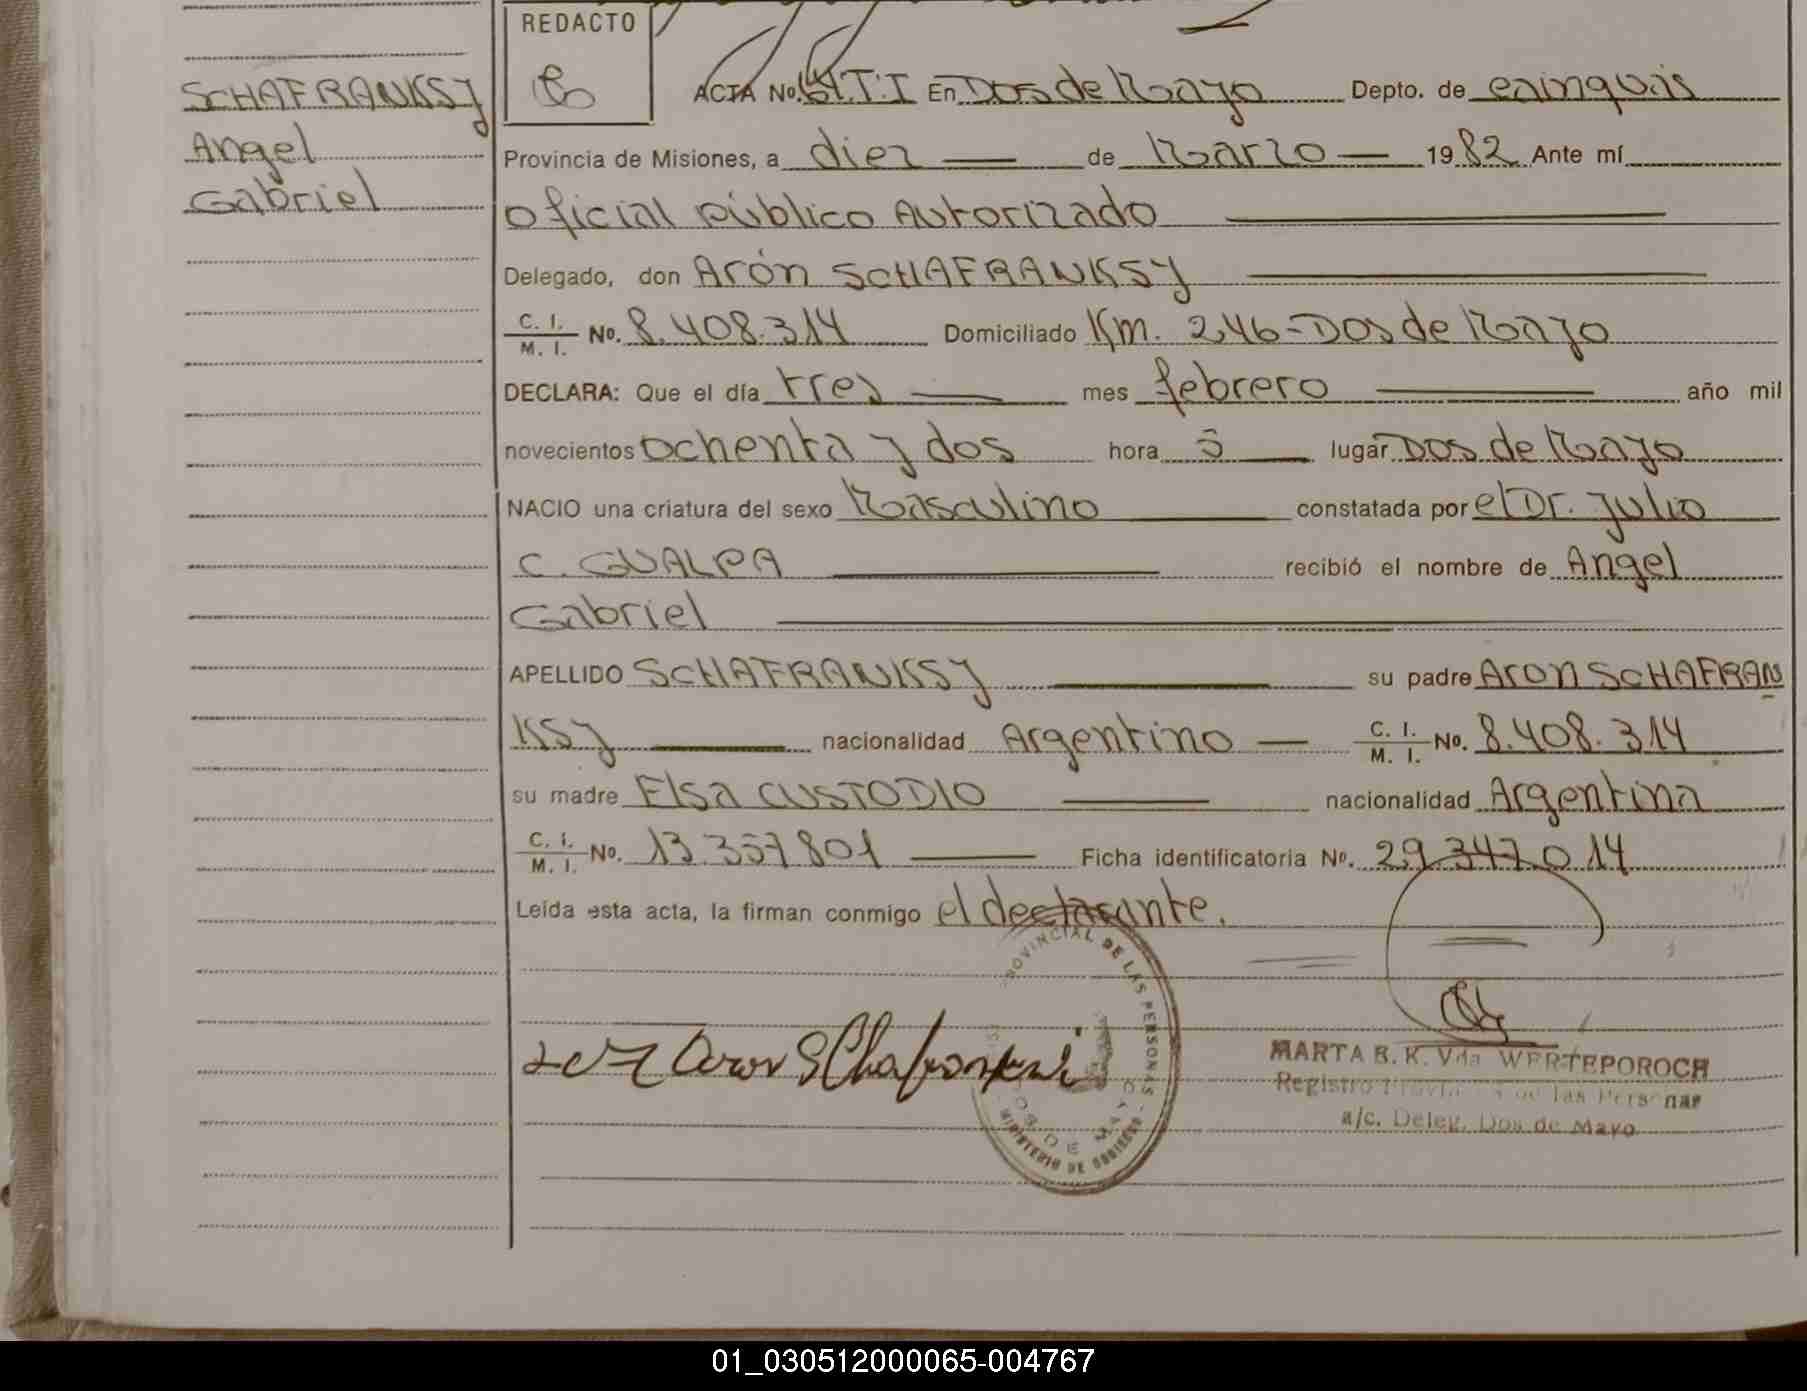 REDACTO
SCHAFRANKSY
Angel
Gabriel
ACTA No. 64.T.I En Dos de Mayo Depto. de cainguás
Provincia de Misiones, a diez de Marzo 1982 Ante mí
Oficial público Autorizado
Delegado, don Arón SCHAFRANKSY
C. I. / M. I. No. 8.408.314 Domiciliado Km. 246-Dos de Mayo
DECLARA: Que el día tres mes febrero año mil
novecientos ochenta y dos hora lugar Dos de Mayo
NACIO una criatura del sexo Masculino constatada por el Dr. Julio
C. GUALPA recibió el nombre de Angel
Gabriel
APELLIDO SCHAFRANKSY su padre Aron SCHAFRAN
KSY nacionalidad Argentino C. I. / M. I. No. 8.408.314
su madre Elsa CUSTODIO nacionalidad Argentina
C. I. / M. I. No. 13.357.801 Ficha identificatoria No. 29.347.014
Leída esta acta, la firman conmigo el declarante.
PROVINCIAL DE LAS PERSONAS
DOS DE MAYO
MINISTERIO DE GOBIERNO
MARTA R. K. Vda. WERTEPOROCH
Registro Provincial de las Personas
a/c. Deleg. Dos de Mayo
01_030512000065-004767